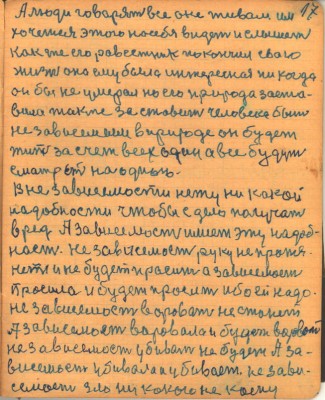 17
А люди говорят все оне живам им
хочетея этого но себя видет и слышет
как же его равестник покончил сваю
жизт она ему была интересная ни когда
он бы не умерал но его природа заста-
вила также заставит человека быт
не зависемаим в природе он будет
жит за счет всех один а все будут
сматрет на одного.
В не зависемости нету ни какой
надобности чтобы здело получат
вред А зависемост имеет эту надоб-
ност. Не зависемост руку не протя-
нет и не будет прасит а зависемост
прасила и будет прасит ибо ей надо.
не зависемост воровать не станет
А зависемост варовала и будет вороват
не зависемост убиват не будет А за-
висемост убивала и убивает. не зави-
семост зло ни какого не